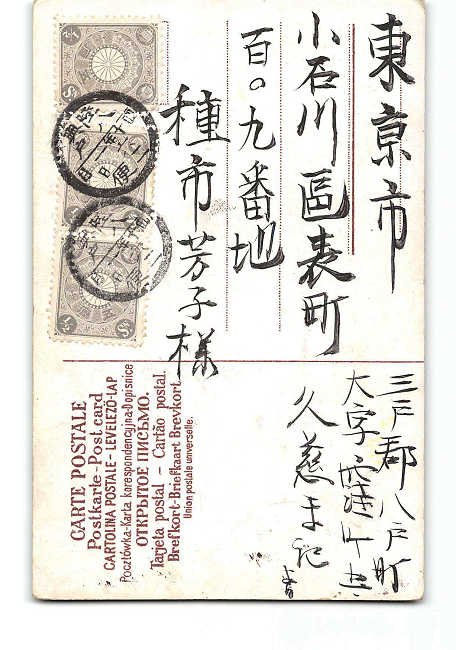 東京市
小石川區表町
百〇九番地
種市芳子様
三戸郡八戸町
大字
久慈
CARTE POSTALE
Postkarte-Post card
CARTOLINA POSTALE-LEVELEZŐ-LAP
Pocztówka-Karta korespondencyjna-Dopisnice
ОТКРЫТОЕ ПИСЬМО.
Tarjeta postal – Cartão postal.
Brefkort-Briefkaart Brevkort.
Union postale universelle.